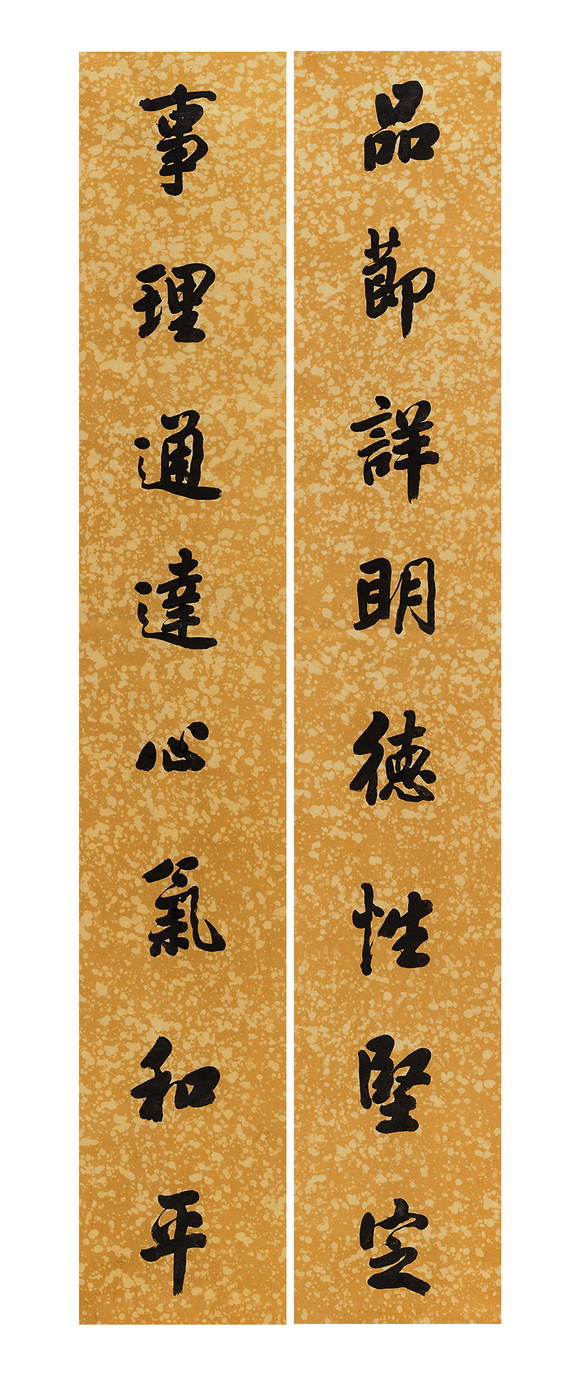 品節詳明德性堅定
事理通達心氣和平